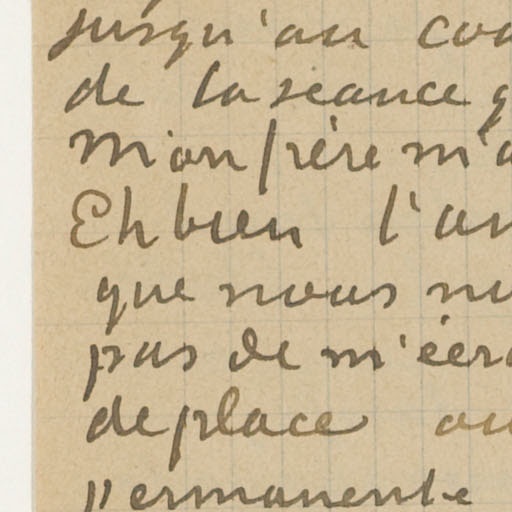 jusqu'au
de la séance
Mon frère m'a
Eh bien l'an
que nous
pas de m'écr
de place ou
permanente